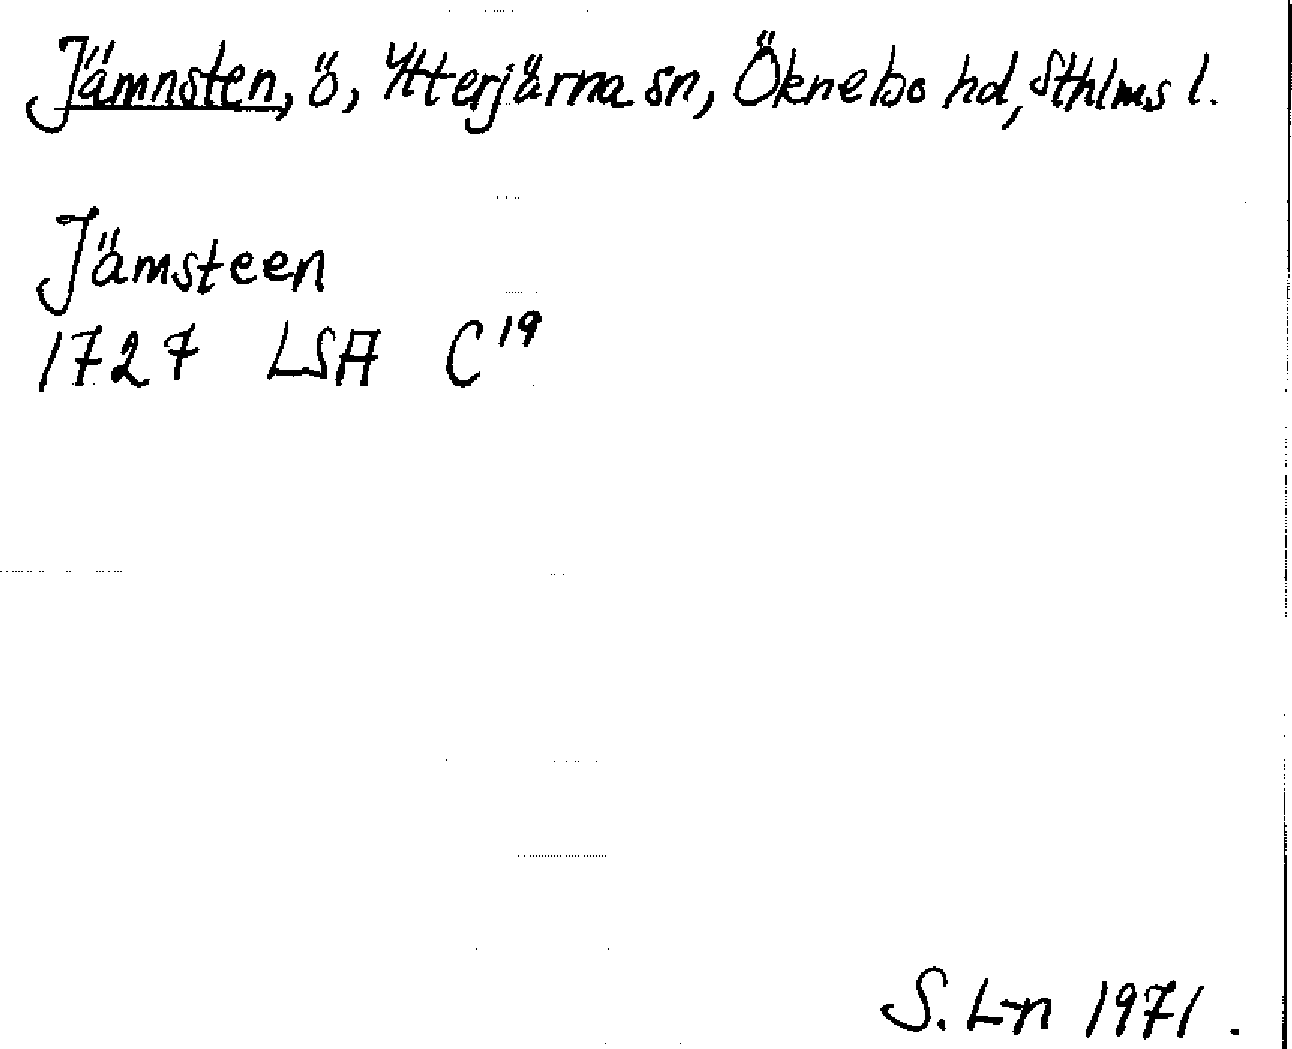 Jämnsten, ö, Ytterjärna sn, Öknebo hd, Sthlms l.
Jämsteen
1727 LSA C¹⁹
S. L-n 1971.